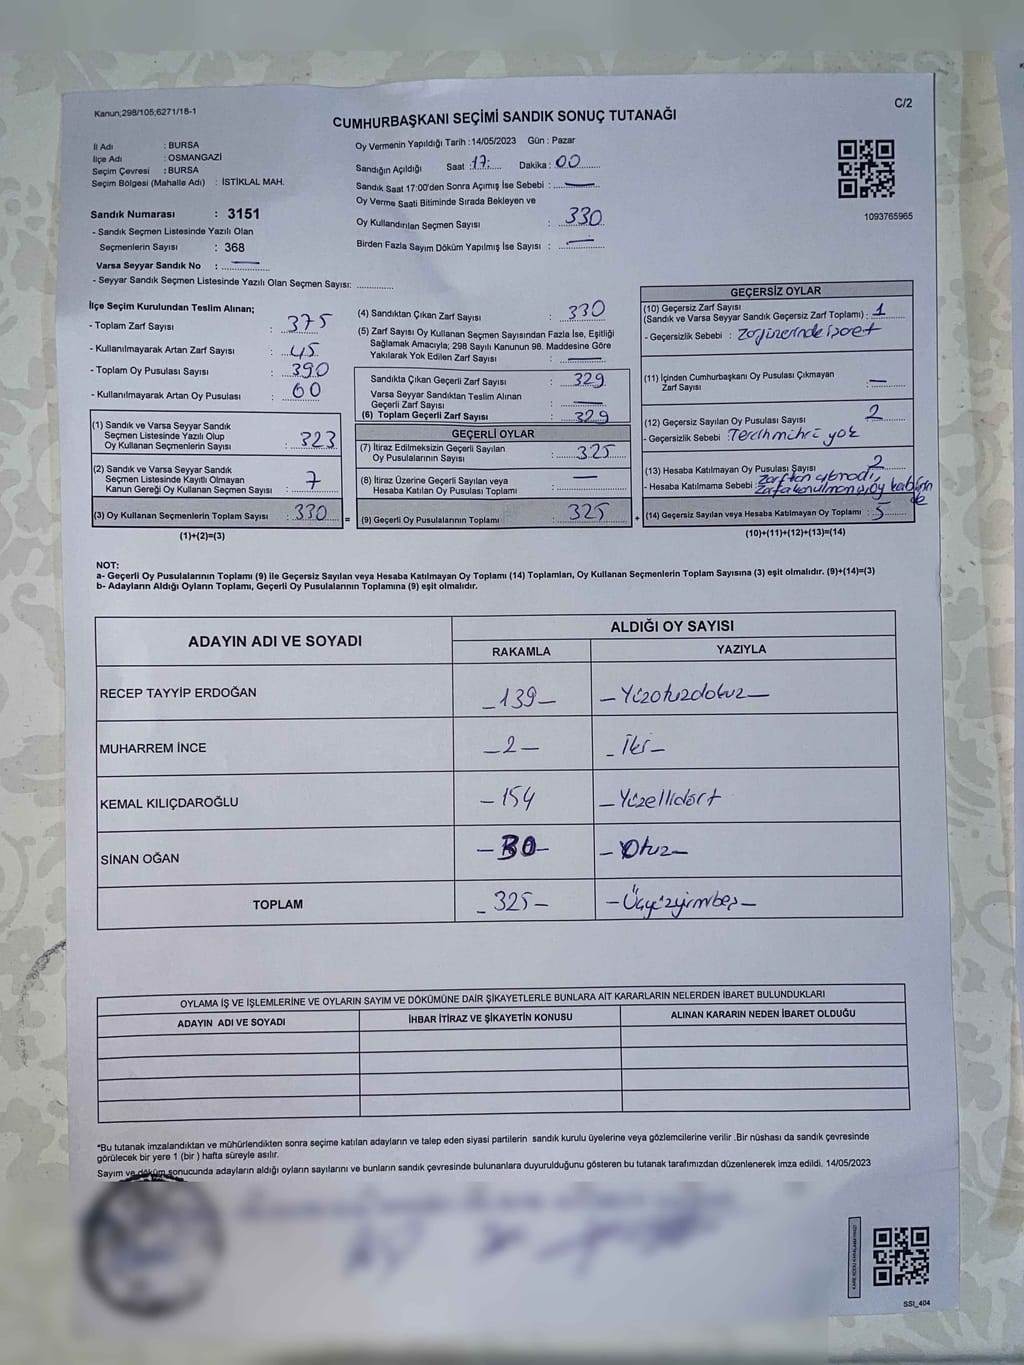 Kanun;298/105;6271/18-1
C/2
CUMHURBAŞKANI SEÇİMİ SANDIK SONUÇ TUTANAĞI
İl Adı : BURSA
İlçe Adı : OSMANGAZİ
Seçim Çevresi : BURSA
Seçim Bölgesi (Mahalle Adı) : İSTİKLAL MAH.
Sandık Numarası : 3151
- Sandık Seçmen Listesinde Yazılı Olan
Seçmenlerin Sayısı : 368
Varsa Seyyar Sandık No :
- Seyyar Sandık Seçmen Listesinde Yazılı Olan Seçmen Sayısı:
Oy Vermenin Yapıldığı Tarih : 14/05/2023 Gün : Pazar
Sandığın Açıldığı Saat : 17: Dakika : 00
Sandık Saat 17:00'den Sonra Açımış İse Sebebi : —
Oy Verme Saati Bitiminde Sırada Bekleyen ve
Oy Kullandırılan Seçmen Sayısı : 330
Birden Fazla Sayım Döküm Yapılmış İse Sayısı : —
1093765965
İlçe Seçim Kurulundan Teslim Alınan;
- Toplam Zarf Sayısı : 375
- Kullanılmayarak Artan Zarf Sayısı : 45
- Toplam Oy Pusulası Sayısı : 390
- Kullanılmayarak Artan Oy Pusulası : 60
(1) Sandık ve Varsa Seyyar Sandık
Seçmen Listesinde Yazılı Olup
Oy Kullanan Seçmenlerin Sayısı : 323
(2) Sandık ve Varsa Seyyar Sandık
Seçmen Listesinde Kayıtlı Olmayan
Kanun Gereği Oy Kullanan Seçmen Sayısı : 7
(3) Oy Kullanan Seçmenlerin Toplam Sayısı : 330 =
(1)+(2)=(3)
(4) Sandıktan Çıkan Zarf Sayısı : 330
(5) Zarf Sayısı Oy Kullanan Seçmen Sayısından Fazla İse, Eşitliği
Sağlamak Amacıyla; 298 Sayılı Kanunun 98. Maddesine Göre
Yakılarak Yok Edilen Zarf Sayısı : —
Sandıkta Çıkan Geçerli Zarf Sayısı : 329
Varsa Seyyar Sandıktan Teslim Alınan
Geçerli Zarf Sayısı : —
(6) Toplam Geçerli Zarf Sayısı : 329
GEÇERLİ OYLAR
(7) İtiraz Edilmeksizin Geçerli Sayılan
Oy Pusulalarının Sayısı : 325
(8) İtiraz Üzerine Geçerli Sayılan veya
Hesaba Katılan Oy Pusulası Toplamı : —
(9) Geçerli Oy Pusulalarının Toplamı : 325 +
GEÇERSİZ OYLAR
(10) Geçersiz Zarf Sayısı
(Sandık ve Varsa Seyyar Sandık Geçersiz Zarf Toplamı) : 1
- Geçersizlik Sebebi : işaret
(11) İçinden Cumhurbaşkanı Oy Pusulası Çıkmayan
Zarf Sayısı : —
(12) Geçersiz Sayılan Oy Pusulası Sayısı : 2
- Geçersizlik Sebebi : Tercih mührü yok
(13) Hesaba Katılmayan Oy Pusulası Sayısı : 2
- Hesaba Katılmama Sebebi : zarftan çıkmadı,
oy kabinin
de
(14) Geçersiz Sayılan veya Hesaba Katılmayan Oy Toplamı : 5
(10)+(11)+(12)+(13)=(14)
NOT:
a- Geçerli Oy Pusulalarının Toplamı (9) ile Geçersiz Sayılan veya Hesaba Katılmayan Oy Toplamı (14) Toplamları, Oy Kullanan Seçmenlerin Toplam Sayısına (3) eşit olmalıdır. (9)+(14)=(3)
b- Adayların Aldığı Oyların Toplamı, Geçerli Oy Pusulalarının Toplamına (9) eşit olmalıdır.
ADAYIN ADI VE SOYADI
ALDIĞI OY SAYISI
RAKAMLA YAZIYLA
RECEP TAYYİP ERDOĞAN –139– –Yüzotuzdokuz–
MUHARREM İNCE –2– –İki–
KEMAL KILIÇDAROĞLU –154 –Yüzellidört
SİNAN OĞAN –30– –Otuz–
TOPLAM –325– –Üçyüzyirmibeş–
OYLAMA İŞ VE İŞLEMLERİNE VE OYLARIN SAYIM VE DÖKÜMÜNE DAİR ŞİKAYETLERLE BUNLARA AİT KARARLARIN NELERDEN İBARET BULUNDUKLARI
ADAYIN ADI VE SOYADI İHBAR İTİRAZ VE ŞİKAYETİN KONUSU ALINAN KARARIN NEDEN İBARET OLDUĞU
*Bu tutanak imzalandıktan ve mühürlendikten sonra seçime katılan adayların ve talep eden siyasi partilerin sandık kurulu üyelerine veya gözlemcilerine verilir .Bir nüshası da sandık çevresinde
görülecek bir yere 1 (bir ) hafta süreyle asılır.
Sayım ve döküm sonucunda adayların aldığı oyların sayılarını ve bunların sandık çevresinde bulunanlara duyurulduğunu gösteren bu tutanak tarafımızdan düzenlenerek imza edildi. 14/05/2023
SSI_404